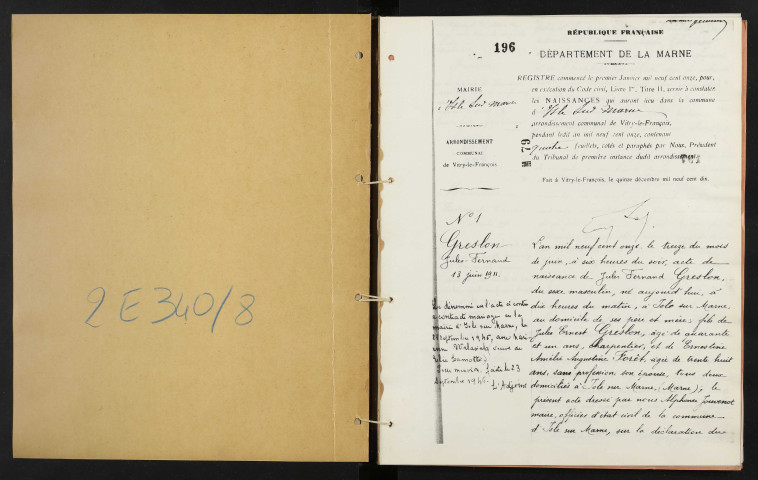 2 E 340/8
196
RÉPUBLIQUE FRANÇAISE
DÉPARTEMENT DE LA MARNE
MAIRIE
d'Isle sur Marne
ARRONDISSEMENT
COMMUNAL
de Vitry-le-François
REGISTRE commencé le premier Janvier mil neuf cent onze, pour,
en exécution du Code civil, Livre Ier, Titre II, servir à constater
les NAISSANCES qui auront lieu dans la commune
d'Isle sur Marne
arrondissement communal de Vitry-le-François,
pendant ledit an mil neuf cent onze, contenant
quatre feuillets, cotés et paraphés par Nous, Président
du Tribunal de première instance dudit arrondissement.
M 79
Fait à Vitry-le-François, le quinze décembre mil neuf cent dix.
No 1
Greslon
Jules Fernand
13 juin 1911
Le dénommé en l'acte ci-contre
a contracté mariage en la
mairie d'Isle sur Marne, le
septembre 1946, avec
veuve de
Gamotte
Dix mention faite le 23
Septembre 1946.
L'Adjoint
L'an mil neuf cent onze le treize du mois
de juin, à six heures du soir, acte de
naissance de Jules Fernand Greslon,
du sexe masculin, né aujourd'hui, à
dix heures du matin, à Isle sur Marne,
au domicile de ses père et mère; fils de
Jules Ernest Greslon, âgé de quarante
et un ans, charpentier, et de Ernestine
Amélie Augustine Forêt, âgée de trente huit
ans, sans profession, son épouse, tous deux
domiciliés à Isle sur Marne, (Marne); le
présent acte dressé par nous Alphonse Jouvenot
maire, officier d'état civil de la commune
d'Isle sur Marne, sur la déclaration du